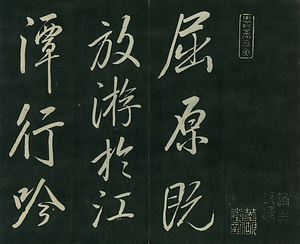 屈原既
放游於江
潭行吟